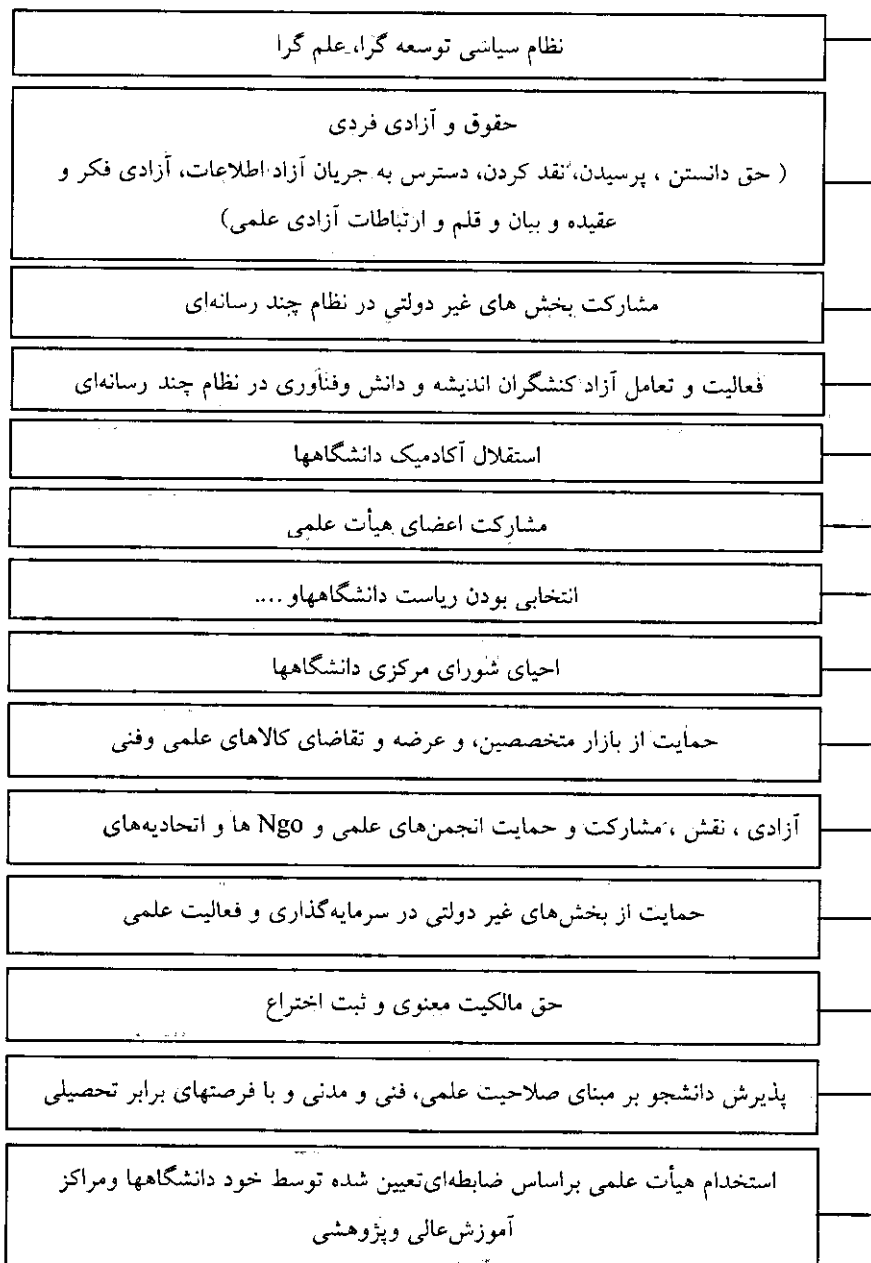 نظام سیاسی توسعه گرا، علم گرا
حقوق و آزادی فردی
( حق دانستن ، پرسیدن، نقد کردن، دسترس به جریان آزاد اطلاعات، آزادی فکر و
عقیده و بیان و قلم و ارتباطات آزادی علمی)
مشارکت بخش های غیر دولتی در نظام چند رسانه‌ای
فعالیت و تعامل آزاد کنشگران اندیشه و دانش وفنآوری در نظام چند رسانه‌ای
استقلال آکادمیک دانشگاهها
مشارکت اعضای هیأت علمی
انتخابی بودن ریاست دانشگاههاو ....
احیای شورای مرکزی دانشگاهها
حمایت از بازار متخصصین، و عرضه و تقاضای کالاهای علمی وفنی
آزادی ، نقش ، مشارکت و حمایت انجمن‌های علمی و Ngo ها و اتحادیه‌های
حمایت از بخش‌های غیر دولتی در سرمایه‌گذاری و فعالیت علمی
حق مالکیت معنوی و ثبت اختراع
پذیرش دانشجو بر مبنای صلاحیت علمی، فنی و مدنی و با فرصتهای برابر تحصیلی
استخدام هیأت علمی براساس ضابطه‌ای‌تعیین شده توسط خود دانشگاهها ومراکز
آموزش‌عالی وپژوهشی